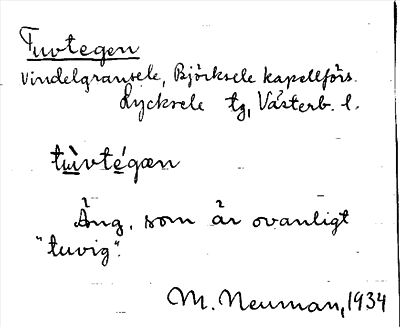 Tuvtegen
Vindelgransele, Björksele kapellförs.
Lycksele tg, Västerb. l.
tùvtégæn
Äng, som är ovanligt
"tuvig".
M. Neuman, 1934